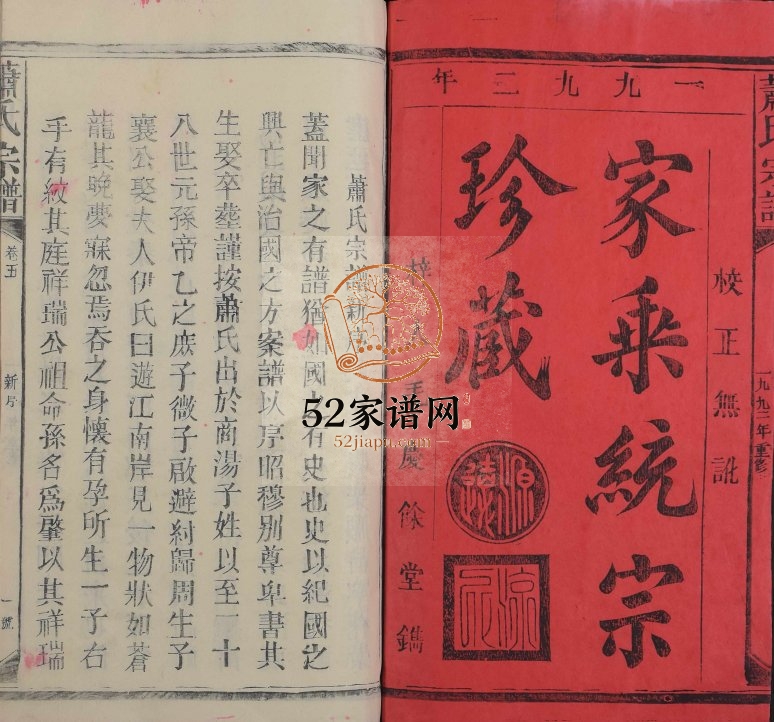 蕭氏宗譜
一九九二年重修
一九九二年
校正無訛
家乘統宗
珍藏
梓 毛慶餘堂鐫
蕭氏宗譜新序
蓋聞家之有譜猶如國之有史也史以紀國之
興亡與治國之方案譜以序昭穆別尊卑書其
生娶卒塟謹按蕭氏出於商湯子姓以至二十
八世元孫帝乙之庶子微子啟避紂歸周生子
襄公娶夫人伊氏日遊江南岸見一物狀如蒼
龍其晚夢寐忽焉吞之身懷有孕所生一子右
手有紋其庭祥瑞公祖命孫名爲肇以其祥瑞
蕭氏宗譜
卷五
新序
一號
52家谱网
52jiapu.com